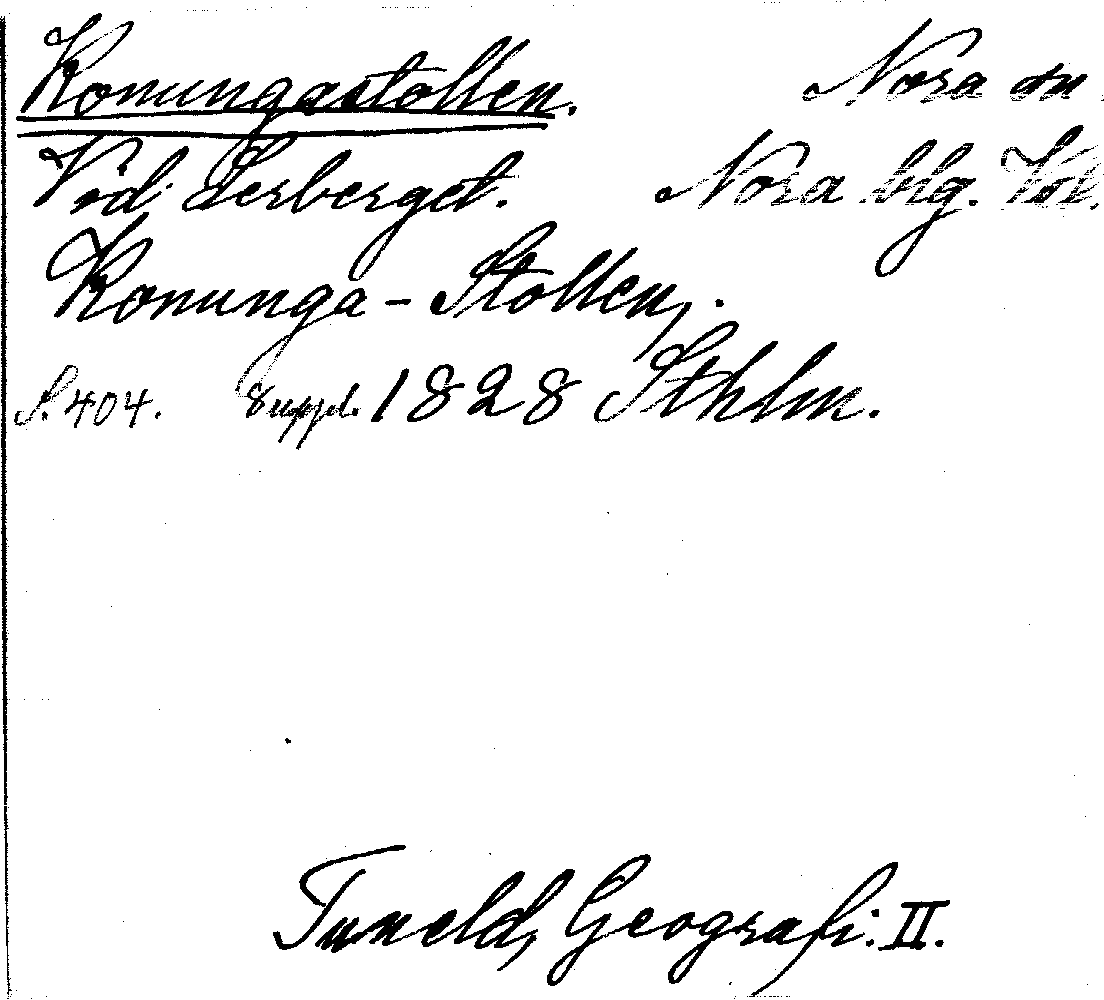 Konungastollen. Nora sn
Vid Perberget. Nora blg. Vstm.
Konunga-Stollen,.
S. 404. Suppl. 1828 Sthlm.
Tuneld, Geografi. II.